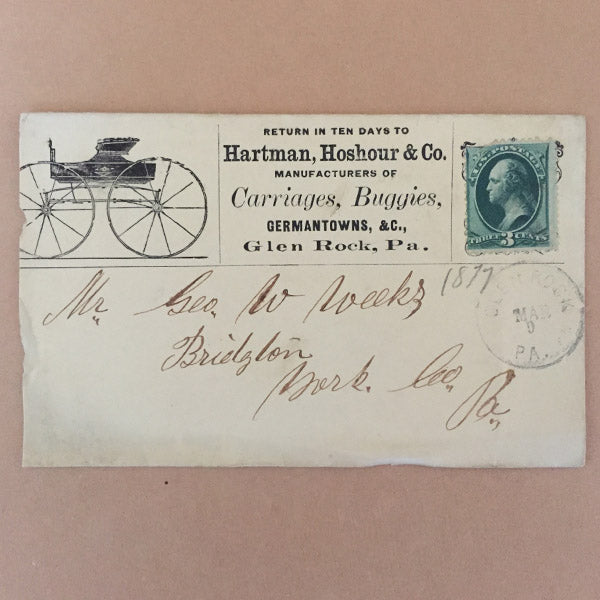 RETURN IN TEN DAYS TO
Hartman, Hoshour & Co.
MANUFACTURERS OF
Carriages, Buggies,
GERMANTOWNS, &C.,
Glen Rock, Pa.
U.S. POSTAGE
THREE 3 CENTS
1877
GLEN ROCK
MAR
PA.
Mr. Geo. W Weeks
Bridgton
York. Co,
Pa,